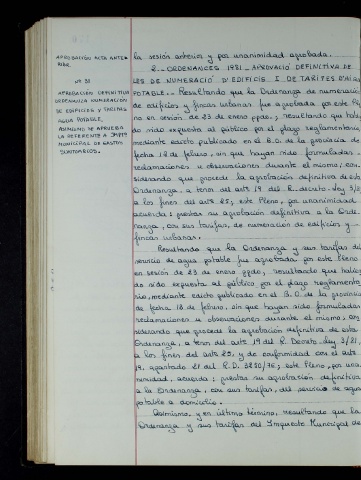 APROBACIÓN ACTA ANTERIOR.
Nº 31
APROBACIÓN DEFINITIVA
ORDENANZA NUMERACIÓN
DE EDIFICIOS Y TARIFAS
AGUA POTABLE,
ASIMISMO SE APRUEBA
LA REFERENTE A IMPTO
MUNICIPAL DE GASTOS
SUNTUARIOS.
la sesión anterior y por unanimidad aprobada.
2.- ORDENANCES 1981.- APROVACIÓ DEFINITIVA DE
LES DE NUMERACIÓ D'EDIFICIS I DE TARIFES D'AIGUA
POTABLE.- Resultando que la Ordenanza de numeración
de edificios y fincas urbanas fue aprobada por este Ple-
no en sesión de 23 de enero ppdo.; resultando que habien-
do sido expuesta al público por el plazo reglamentario
mediante edicto publicado en el B.O. de la provincia de
fecha 18 de febrero, sin que hayan sido formuladas
reclamaciones u observaciones durante el mismo; con-
siderando que procede la aprobación definitiva de esta
Ordenanza, a tenor del artº 19 del R. decreto-ley 3/81
a los fines del artº 25; este Pleno, por unanimidad
acuerda: prestar su aprobación definitiva a la Orde-
nanza, con sus tarifas, de numeración de edificios y
fincas urbanas.
Resultando que la Ordenanza y sus tarifas del
servicio de agua potable fue aprobada por este Pleno
en sesión de 23 de enero ppdo., resultando que habien-
do sido expuesta al público por el plazo reglamenta-
rio, mediante edicto publicado en el B.O. de la provincia
de fecha 18 de febrero, sin que hayan sido formuladas
reclamaciones u observaciones durante el mismo; con-
siderando que procede la aprobación definitiva de esta
Ordenanza, a tenor del artº 19 del R. Decreto-ley 3/81,
a los fines del artº 25, y de conformidad con el artº
19, apartado 21 del R.D. 3250/76; este Pleno, por una-
nimidad, acuerda: prestar su aprobación definitiva
a la Ordenanza, con sus tarifas, del servicio de agua
potable a domicilio.
Asimismo, y en último término, resultando que la
Ordenanza y sus tarifas del Impuesto Municipal de